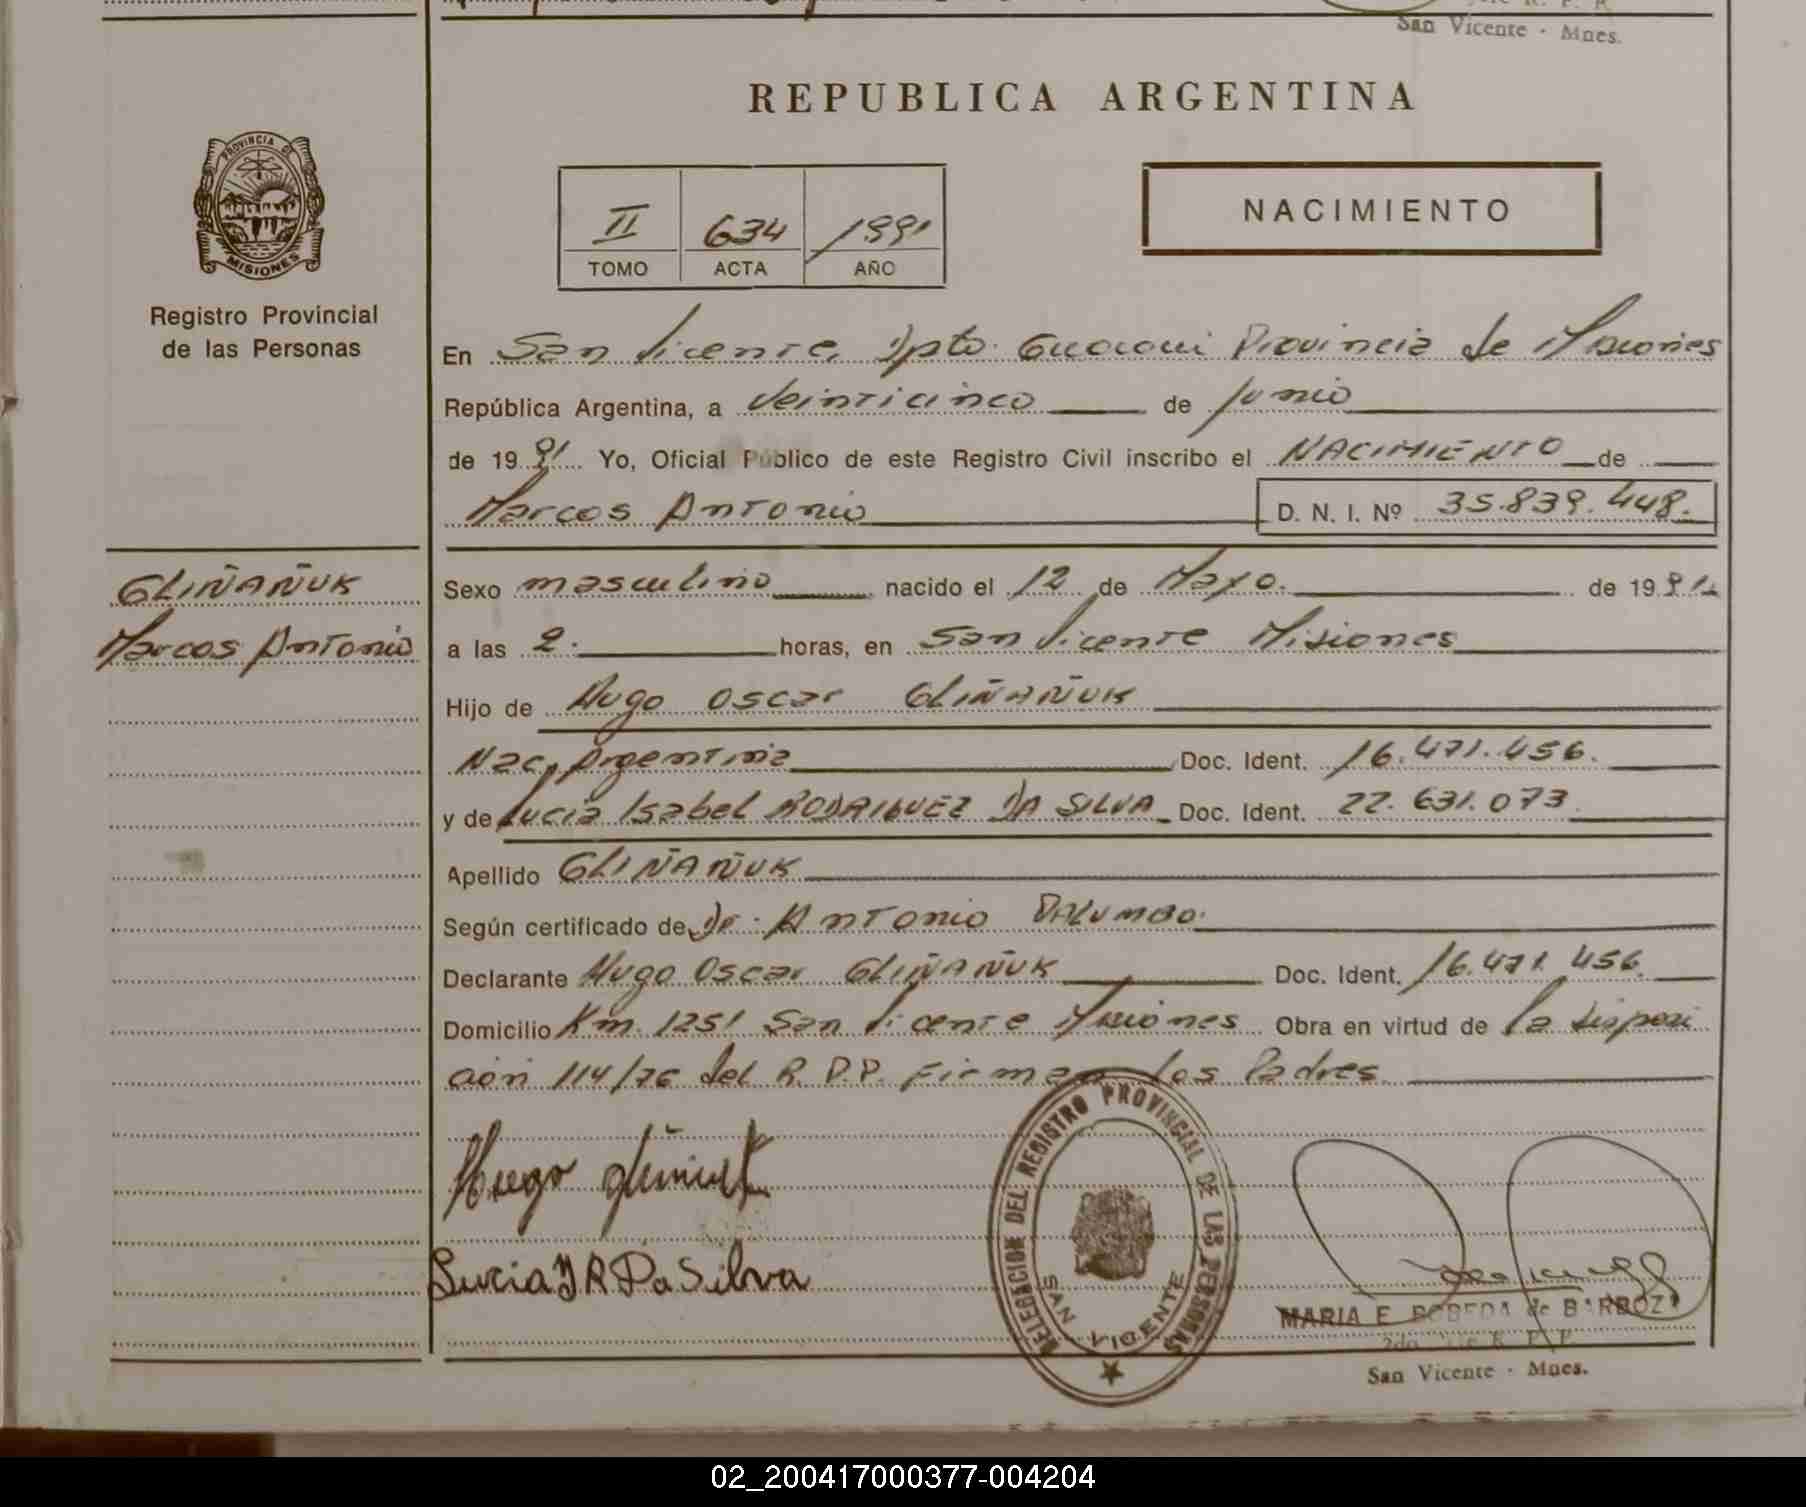 San Vicente - Mnes.
REPUBLICA ARGENTINA
PROVINCIA DE
MISIONES
Registro Provincial
de las Personas
II 634 1991
TOMO ACTA AÑO
NACIMIENTO
En San Vicente, Dpto. Guarani Provincia de Misiones
República Argentina, a Veinticinco de Junio
de 1991 Yo, Oficial Público de este Registro Civil inscribo el NACIMIENTO de
Marcos Antonio D. N. I. Nº 35.839.448.
GLIÑAÑUK
Marcos Antonio
Sexo masculino nacido el 12 de Mayo. de 1991
a las 2. horas, en San Vicente Misiones
Hijo de Hugo Oscar GLIÑAÑUK
Nac. Argentina Doc. Ident. 16.471.456.
y de Lucia Isabel RODRIGUEZ DA SILVA Doc. Ident. 22.631.073
Apellido GLIÑAÑUK
Según certificado de Dr. Antonio PALUMBO.
Declarante Hugo Oscar GLIÑAÑUK Doc. Ident. 16.471.456.
Domicilio Km. 1251 San Vicente Misiones Obra en virtud de la disposi
ción 114/76 del R.P.P. Firman los Padres.
Hugo
Lucia I R Da Silva
DELEGACION DEL REGISTRO PROVINCIAL DE LAS PERSONAS
SAN VICENTE
MARIA E. BOBEDA de BARBOZA
San Vicente - Mnes.
02_200417000377-004204